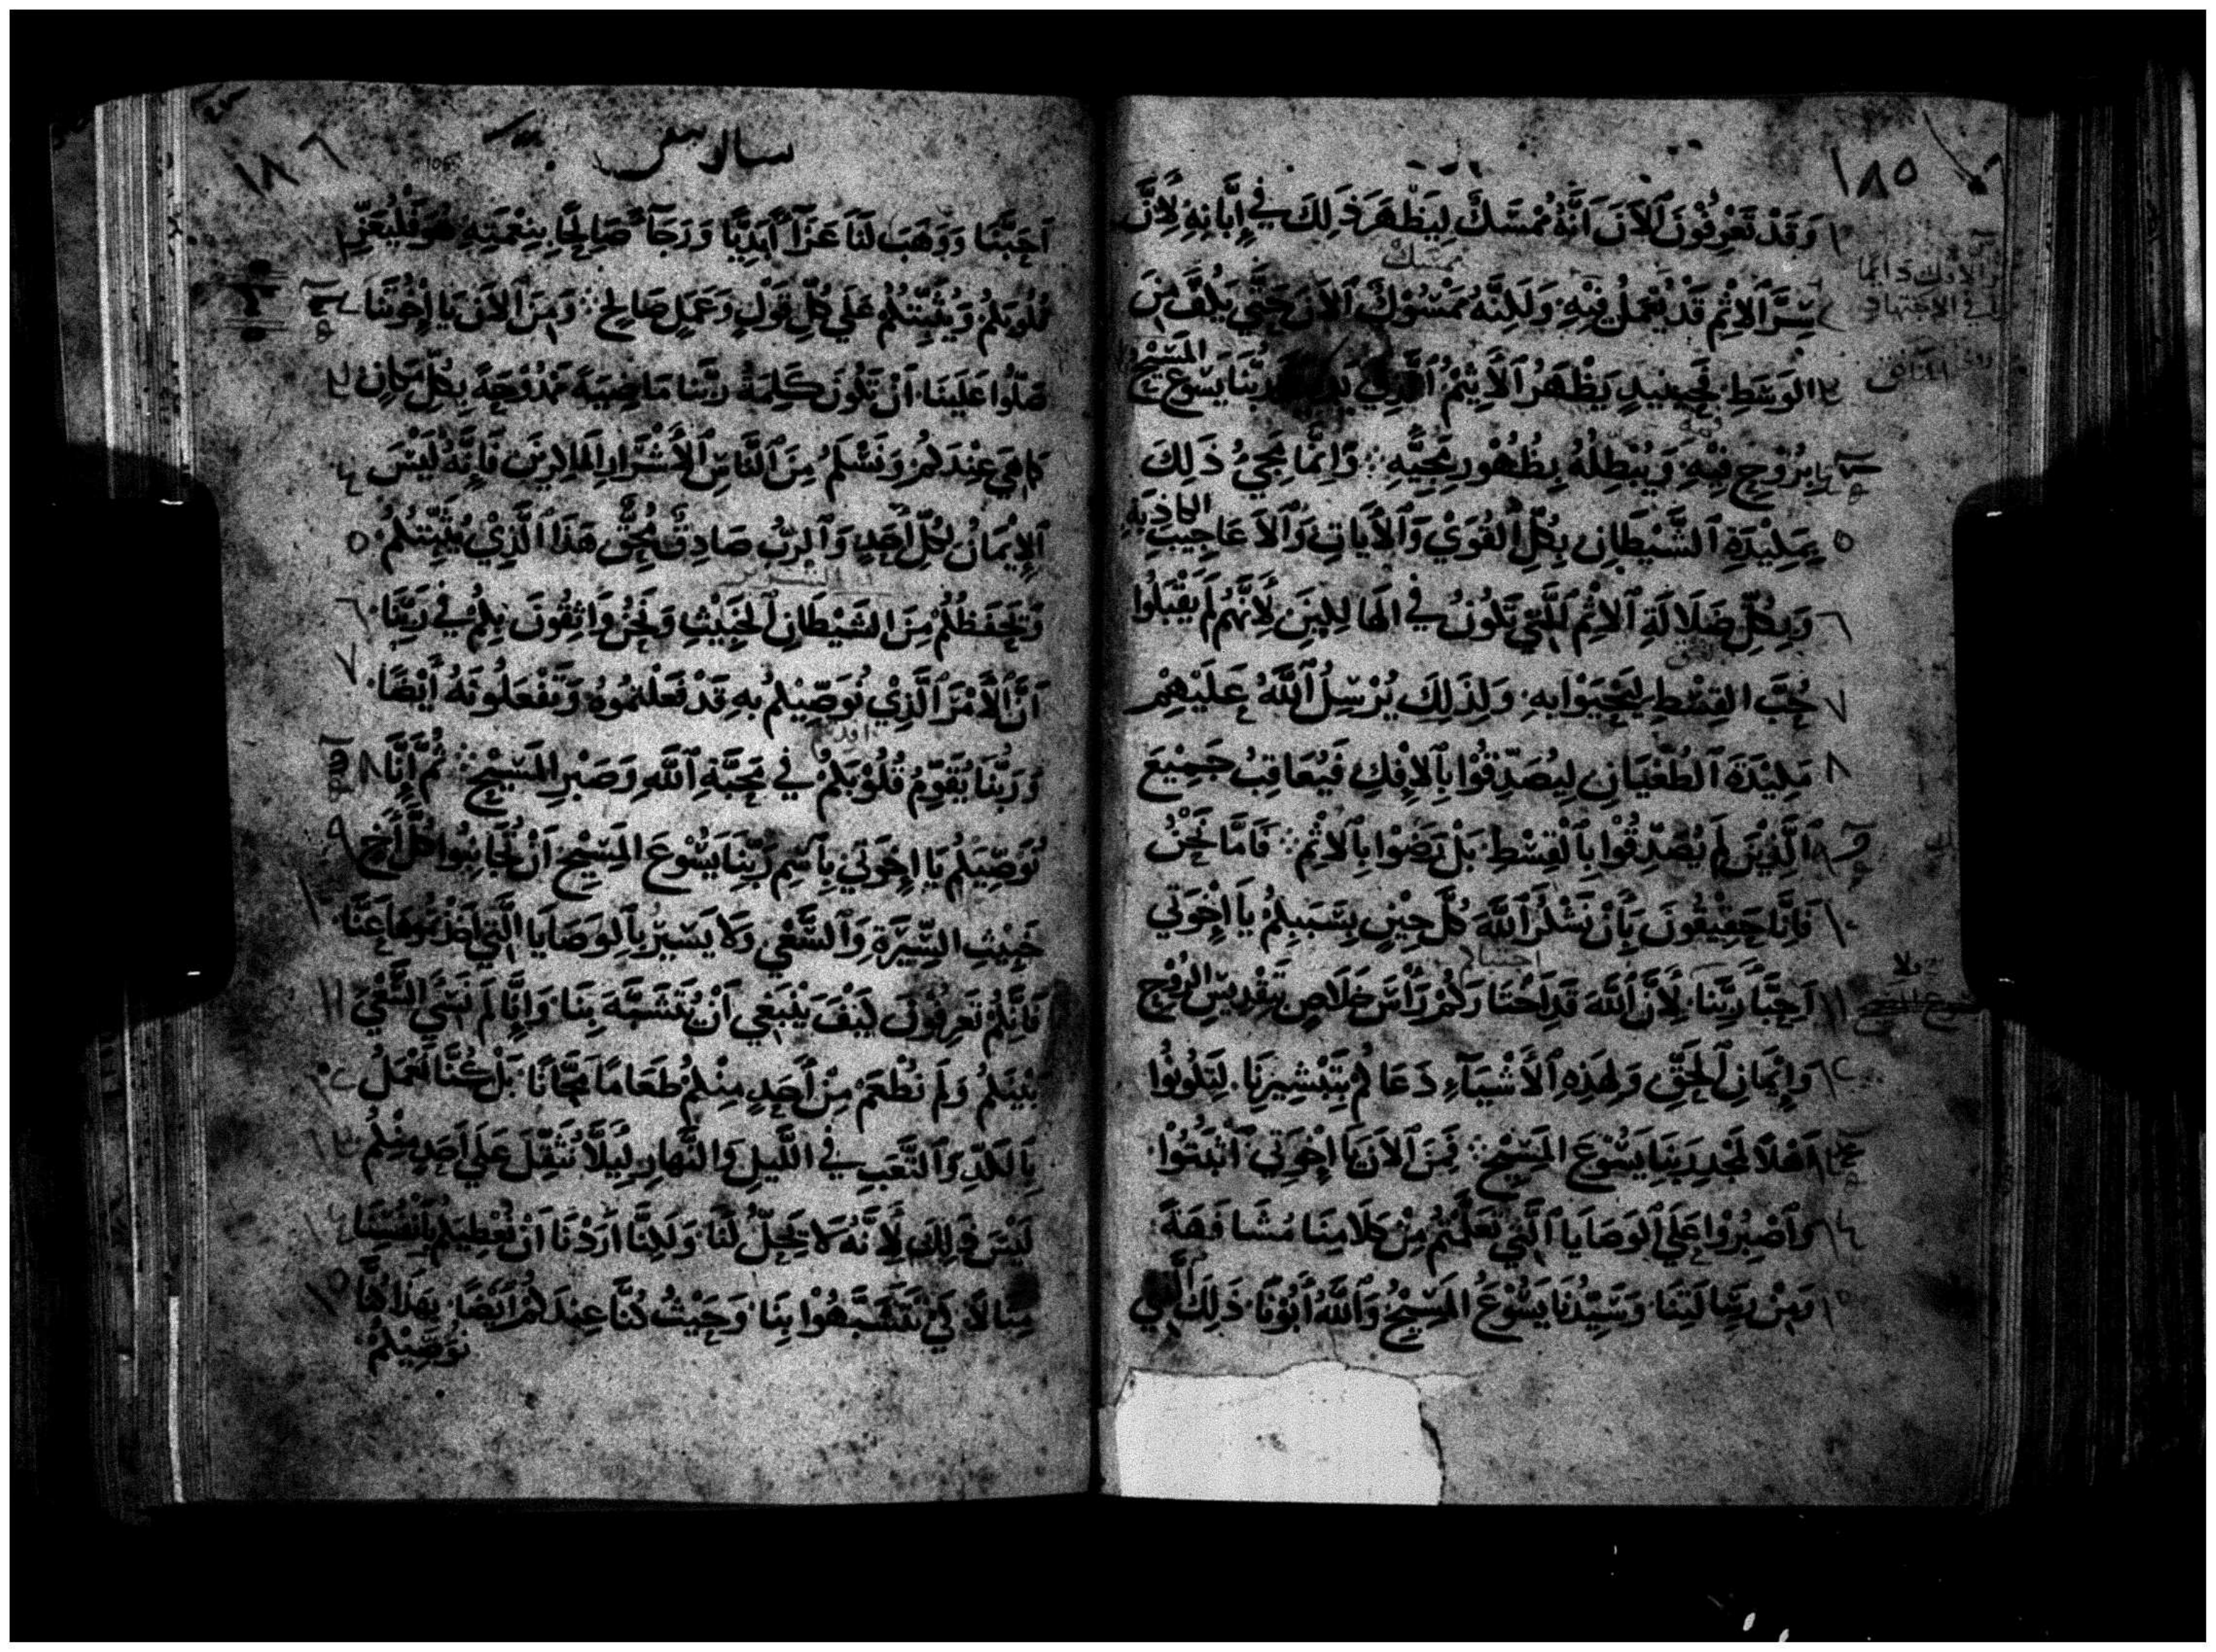 ١٨٥
١ وَقَدْ تَعْرِفُوْنَ ٱلْآنَ اَنَّهُ مُمْسَكٌ لِيَظْهَرَ ذَلِكَ فِي إِبَّانِهِ لِأَنَّ
ممسك
سِرَّ ٱلْاِثْمِ قَدْ يُعْمَلُ فِيْهِ وَلَكِنَّهُ مَمْسُوْكٌ ٱلْآنَ حَتَّى يُلَفَّ مِنَ
٣ الوَسَطِ فَحِيْنَيِذٍ يَظْهَرُ ٱلْأَثِيْمُ ٱلَّذِي رَبُّنَا يَسُوْع المَسِيْح
٤ بِرُوْحِ فِيْهِ وَيُبْطِلُهُ بِظُهُوْرِ مَجِيَّهِ ۞ وَاِنَّمَا مَجِيُ ذَلِكَ
٥ بِمَلِيْدَةِ ٱلشَّيْطَانِ بِكُلِّ ٱلْقُوَيْ وَٱلْأَيَاتِ وَٱلْاَعَاجِيْبِ الكاذِبَةِ
٦ وَبِكُلِّ ضَلَالَةِ ٱلْاِثْمِ ٱللَّتِي تَكُونُ فِي الهَالِكِيْنَ لِأَنَّهُمْ لَمْ يَقْبَلُوا
٧ حُبَّ القِسْطِ لِيَحْيَوْا بِهِ وَلِذَلِكَ يُرْسِلُ ٱللَّهُ عَلَيْهِمْ
٨ مَلِيْدَةَ ٱلطُّغْيَانِ لِيُصَدِّقُوْا بِٱلْاِفْكِ فَيُعَاقِبُ جَمِيْعَ
٩ ٱلَّذِيْنَ لَمْ يُصَدِّقُوْا بِٱلْقِسْطِ بَلْ رَضَوْا بِٱلْاِثْمِ ۞ فَاَمَّا نَحْنُ
١٠ فَاِنَّا حَقِيْقُوْنَ بِأَنْ نَشْكُرَ ٱللَّهَ كُلَّ حِيْنٍ بِسَبَبِكُمْ يَا اِخْوَتِي
١١ اَحِبَّا رَبِّنَا لِأَنَّ ٱللَّهَ قَدِ اخْتَارَكُمْ رَاسَ خَلَاصٍ بِتَقْدِيْسِ الرُّوْحِ
١٢ وَاِيْمَانِ ٱلْحَقِّ وَلِهَذِهِ ٱلْأَشْيَآءِ دَعَاكُمْ بِتَبْشِيْرِنَا لِتَكُونُوْا
١٣ اَهْلًا لِمَجْدِ رَبِّنَا يَسُوْعَ المَسِيْحِ ۞ فَمِنَ ٱلْآنَ يَا اِخْوَتِي ٱثْبُتُوْا
١٤ وَٱصْبِرُوْا عَلَى ٱلْوَصَايَا ٱلَّتِي تَعَلَّمْتُمْ مِنْ كَلَامِنَا مُشَافَهَةً
١٥ وَمِنْ رِسَالَتِنَا وَسَيِّدُنَا يَسُوْعُ المَسِيْحُ وَٱللَّهُ أَبُوْنَا ذَلِكَ ٱلَّذِي
١٨٦
اَحَبَّنَا وَوَهَبَ لَنَا عَزَآءً أَبَدِيًّا وَرَجَآءً صَالِحًا بِنِعْمَتِهِ هُوَ فَلْيُعَزِّ
قُلُوبَكُمْ وَيُثَبِّتْكُمْ عَلَى كُلِّ قَوْلٍ وَعَمَلٍ صَالِحٍ ۞ وَمِنَ ٱلْآنَ يَا إِخْوَتَنَا
صَلُّوا عَلَيْنَا اَنْ تَكُونَ كَلِمَةُ رَبِّنَا مَاضِيَةً مَمْدُوْحَةً بِكُلِّ مَكَانٍ ٣
كَمَا هِيَ عِنْدَكُمْ وَنَسْلَمَ مِنَ ٱلنَّاسِ ٱلْأَشْرَارِ ٱلْمَاكِرِيْنَ فَاِنَّهُ لَيْسَ ٤
ٱلْاِيْمَانُ لِكُلِّ أَحَدٍ وَٱلرَّبُّ صَادِقٌ مُحِقٌّ هَذَا ٱلَّذِيْ يُثَبِّتُكُمْ ٥
وَيَحْفَظُكُمْ مِنَ الشَيْطَانِ ٱلْخَبِيْثِ وَنَحْنُ وَاثِقُونَ بِكُمْ فِي رَبِّنَا ٦
اَنَّ ٱلْأَمْرَ ٱلَّذِيْ نُوَصِّيْكُمْ بِهِ قَدْ فَعَلْتُمُوهُ وَتَفْعَلُونَهُ أَيْضًا ٧
وَرَبُّنَا يُقَوِّمُ قُلُوْبَكُمْ فِي مَحَبَّةِ ٱللَّهِ وَصَبْرِ المَسِيْحِ ۞ ثُمَّ اِنَّا ٨
نُوَصِّيْكُمْ يَا اِخْوَتِي بِاسْمِ رَبِّنَا يَسُوْعَ المَسِيْحِ اَنْ تُجَانِبُوا كُلَّ أَخٍ ٩
خَبِيْثِ السِّيْرَةِ وَٱلسَّعْيِ وَلَا يَسِيْرُ بِٱلْوَصَايَا ٱلَّتِي اَخَذْتُمُوهَا عَنَّا ١٠
فَاِنَّكُمْ تَعْرِفُوْنَ كَيْفَ يَنْبَغِي اَنْ يُتَشَبَّهَ بِنَا وَاِنَّا لَمْ نَسْعَ السَّعْيَ ١١
بَيْنَكُمْ وَلَمْ نَطْعَمْ مِنْ أَحَدٍ مِنْكُمْ طَعَامًا مَجَّانًا بَلْ كُنَّا نَعْمَلُ ١٢
بِٱلْكَدِّ وَٱلتَّعَبِ فِي اللَّيْلِ وَالنَّهَارِ لِيَلَّا نُثَقِّلَ عَلَى اَحَدٍ مِنْكُمْ ١٣
لَيْسَ ذَلِكَ لِأَنَّهُ لَا يَحِلُّ لَنَا وَلَكِنَّا اَرَدْنَا اَنْ نُعْطِيَكُمْ بِأَنْفُسِنَا ١٤
مِثَالًا لِكَيْ تَتَشَبَّهُوْا بِنَا وَحَيْثُ كُنَّا عِنْدَكُمْ أَيْضًا بِهَذَا كُنَّا ١٥
نُوَصِّيْكُمْ